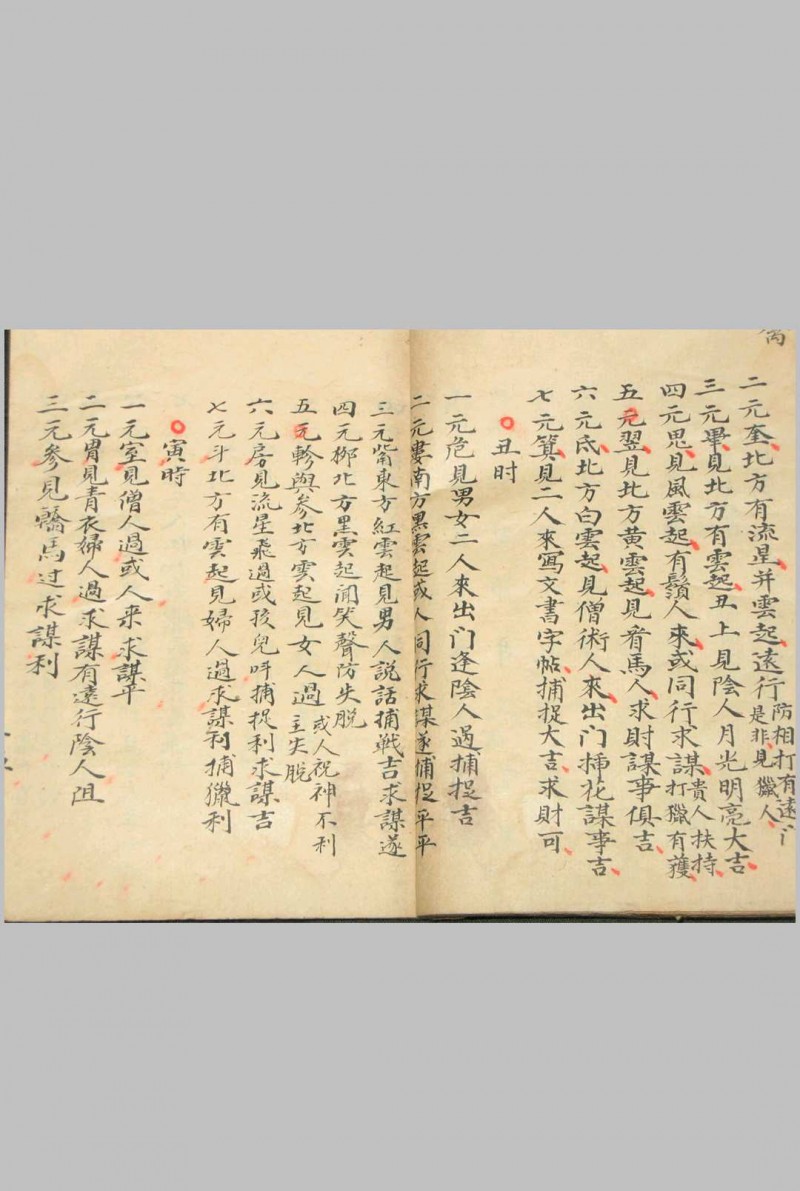 二元奎北方有流星并雲起遠行防相打有遠行是非見獵人
三元畢見北方有雲起丑上見陰人月光明亮大吉
四元思見風雲起有鬚人來或同行求謀貴人扶持打獵有獲
五元翌見北方黃雲起見看馬人求財謀事俱吉
六元氐北方白雲起見僧術人來出门插花謀事吉
七元箕見二人來寫文書字帖捕捉大吉求財可
丑时
一元危見男女二人來出门逢陰人過捕捉吉
二元婁南方黑雲起或人同行求謀遂捕捉平平
三元觜東方紅雲起見男人說話捕戰吉求謀遂
四元柳北方黑雲起闻笑聲防失脫
五元軫與參北方雲起見女人過或人祝神不利主失脫
六元房見流星飛過或孩兒呌捕捉利求謀吉
七元斗北方有雲起見婦人過求謀利捕獵利
寅時
一元室見僧人過或人来求謀平
二元胃見青衣婦人過求謀有遠行陰人阻
三元參見驕馬过求謀利